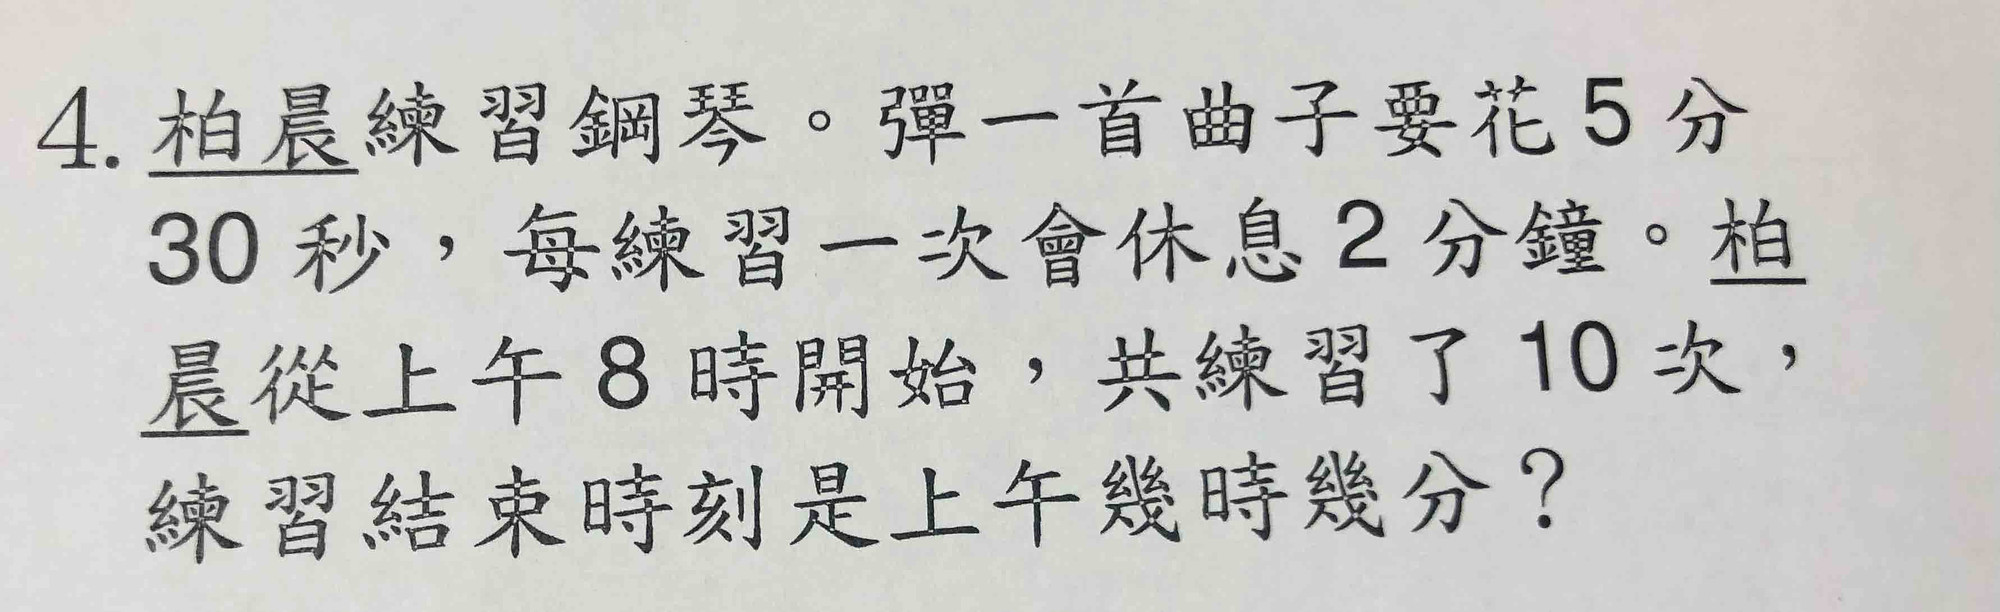 4. 柏晨練習鋼琴。彈一首曲子要花5分
30秒，每練習一次會休息2分鐘。柏
晨從上午8時開始，共練習了10次，
練習結束時刻是上午幾時幾分？